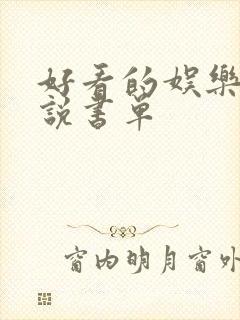 好看的娱樂
說書單
窗内明月窗外